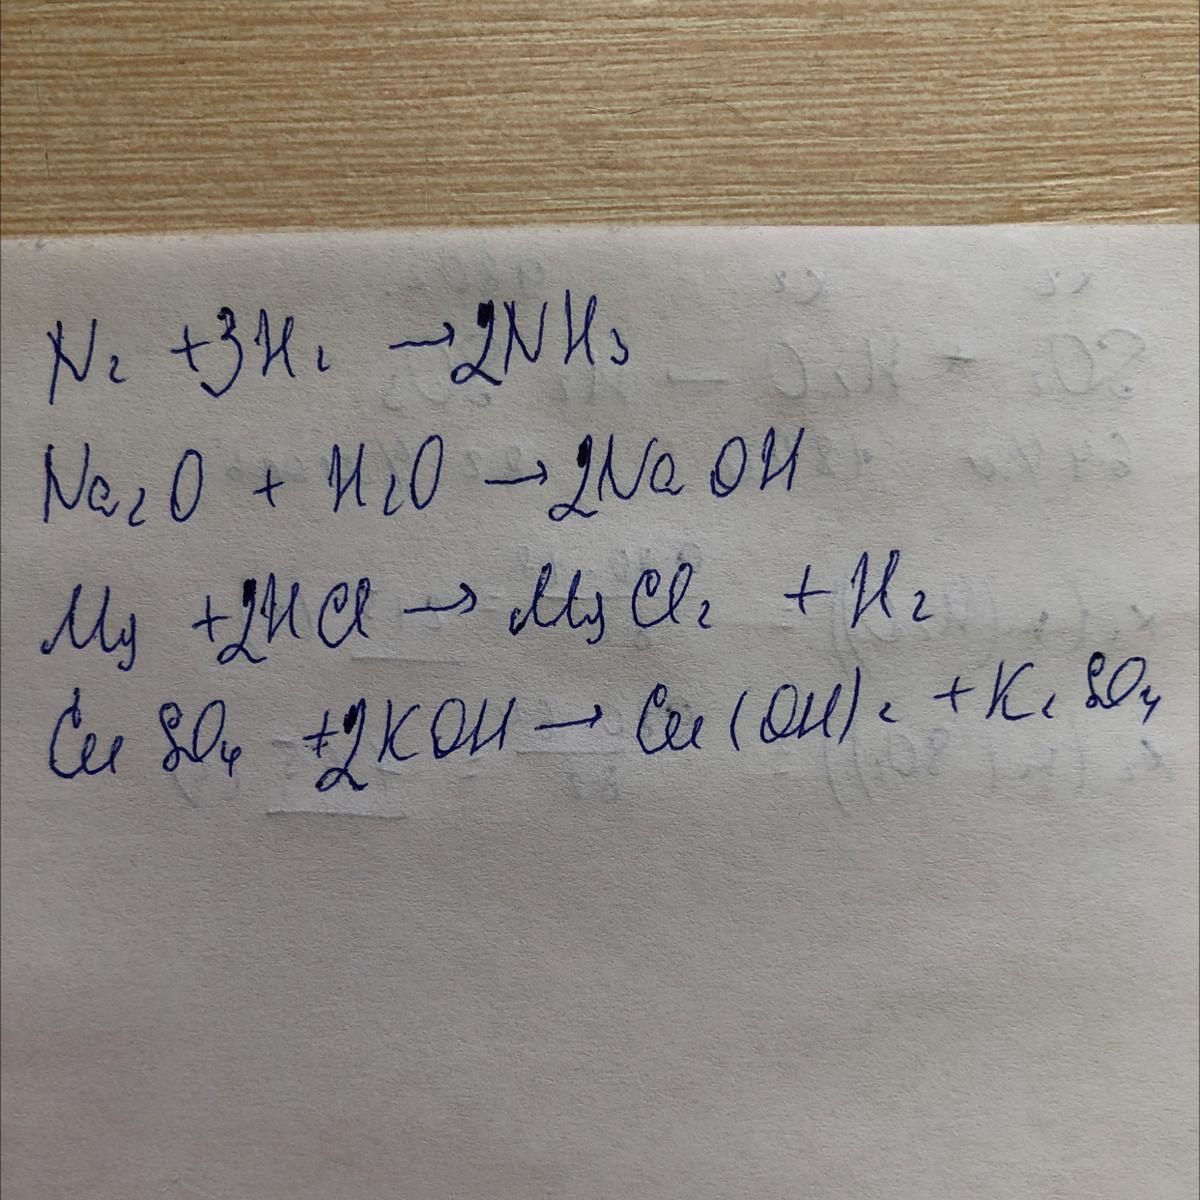 N₂ + 3H₂ → 2NH₃
Na₂O + H₂O → 2NaOH
Mg + 2HCl → MgCl₂ + H₂
CuSO₄ + 2KOH → Cu(OH)₂ + K₂SO₄